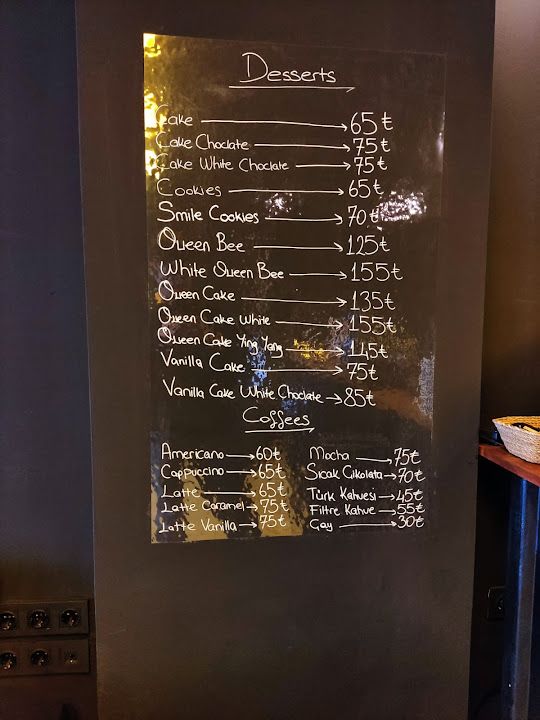 Desserts
Cake → 65₺
Cake Choclate → 75₺
Cake White Choclate → 75₺
Cookies → 65₺
Smile Cookies → 70₺
Queen Bee → 125₺
White Queen Bee → 155₺
Queen Cake → 135₺
Queen Cake White → 155₺
Queen Cake Ying Yang → 145₺
Vanilla Cake → 75₺
Vanilla Cake White Choclate → 85₺
Coffees
Americano → 60₺
Cappuccino → 65₺
Latte → 65₺
Latte Caramel → 75₺
Latte Vanilla → 75₺
Mocha → 75₺
Sıcak Çikolata → 70₺
Türk Kahvesi → 45₺
Filtre Kahve → 55₺
Çay → 30₺